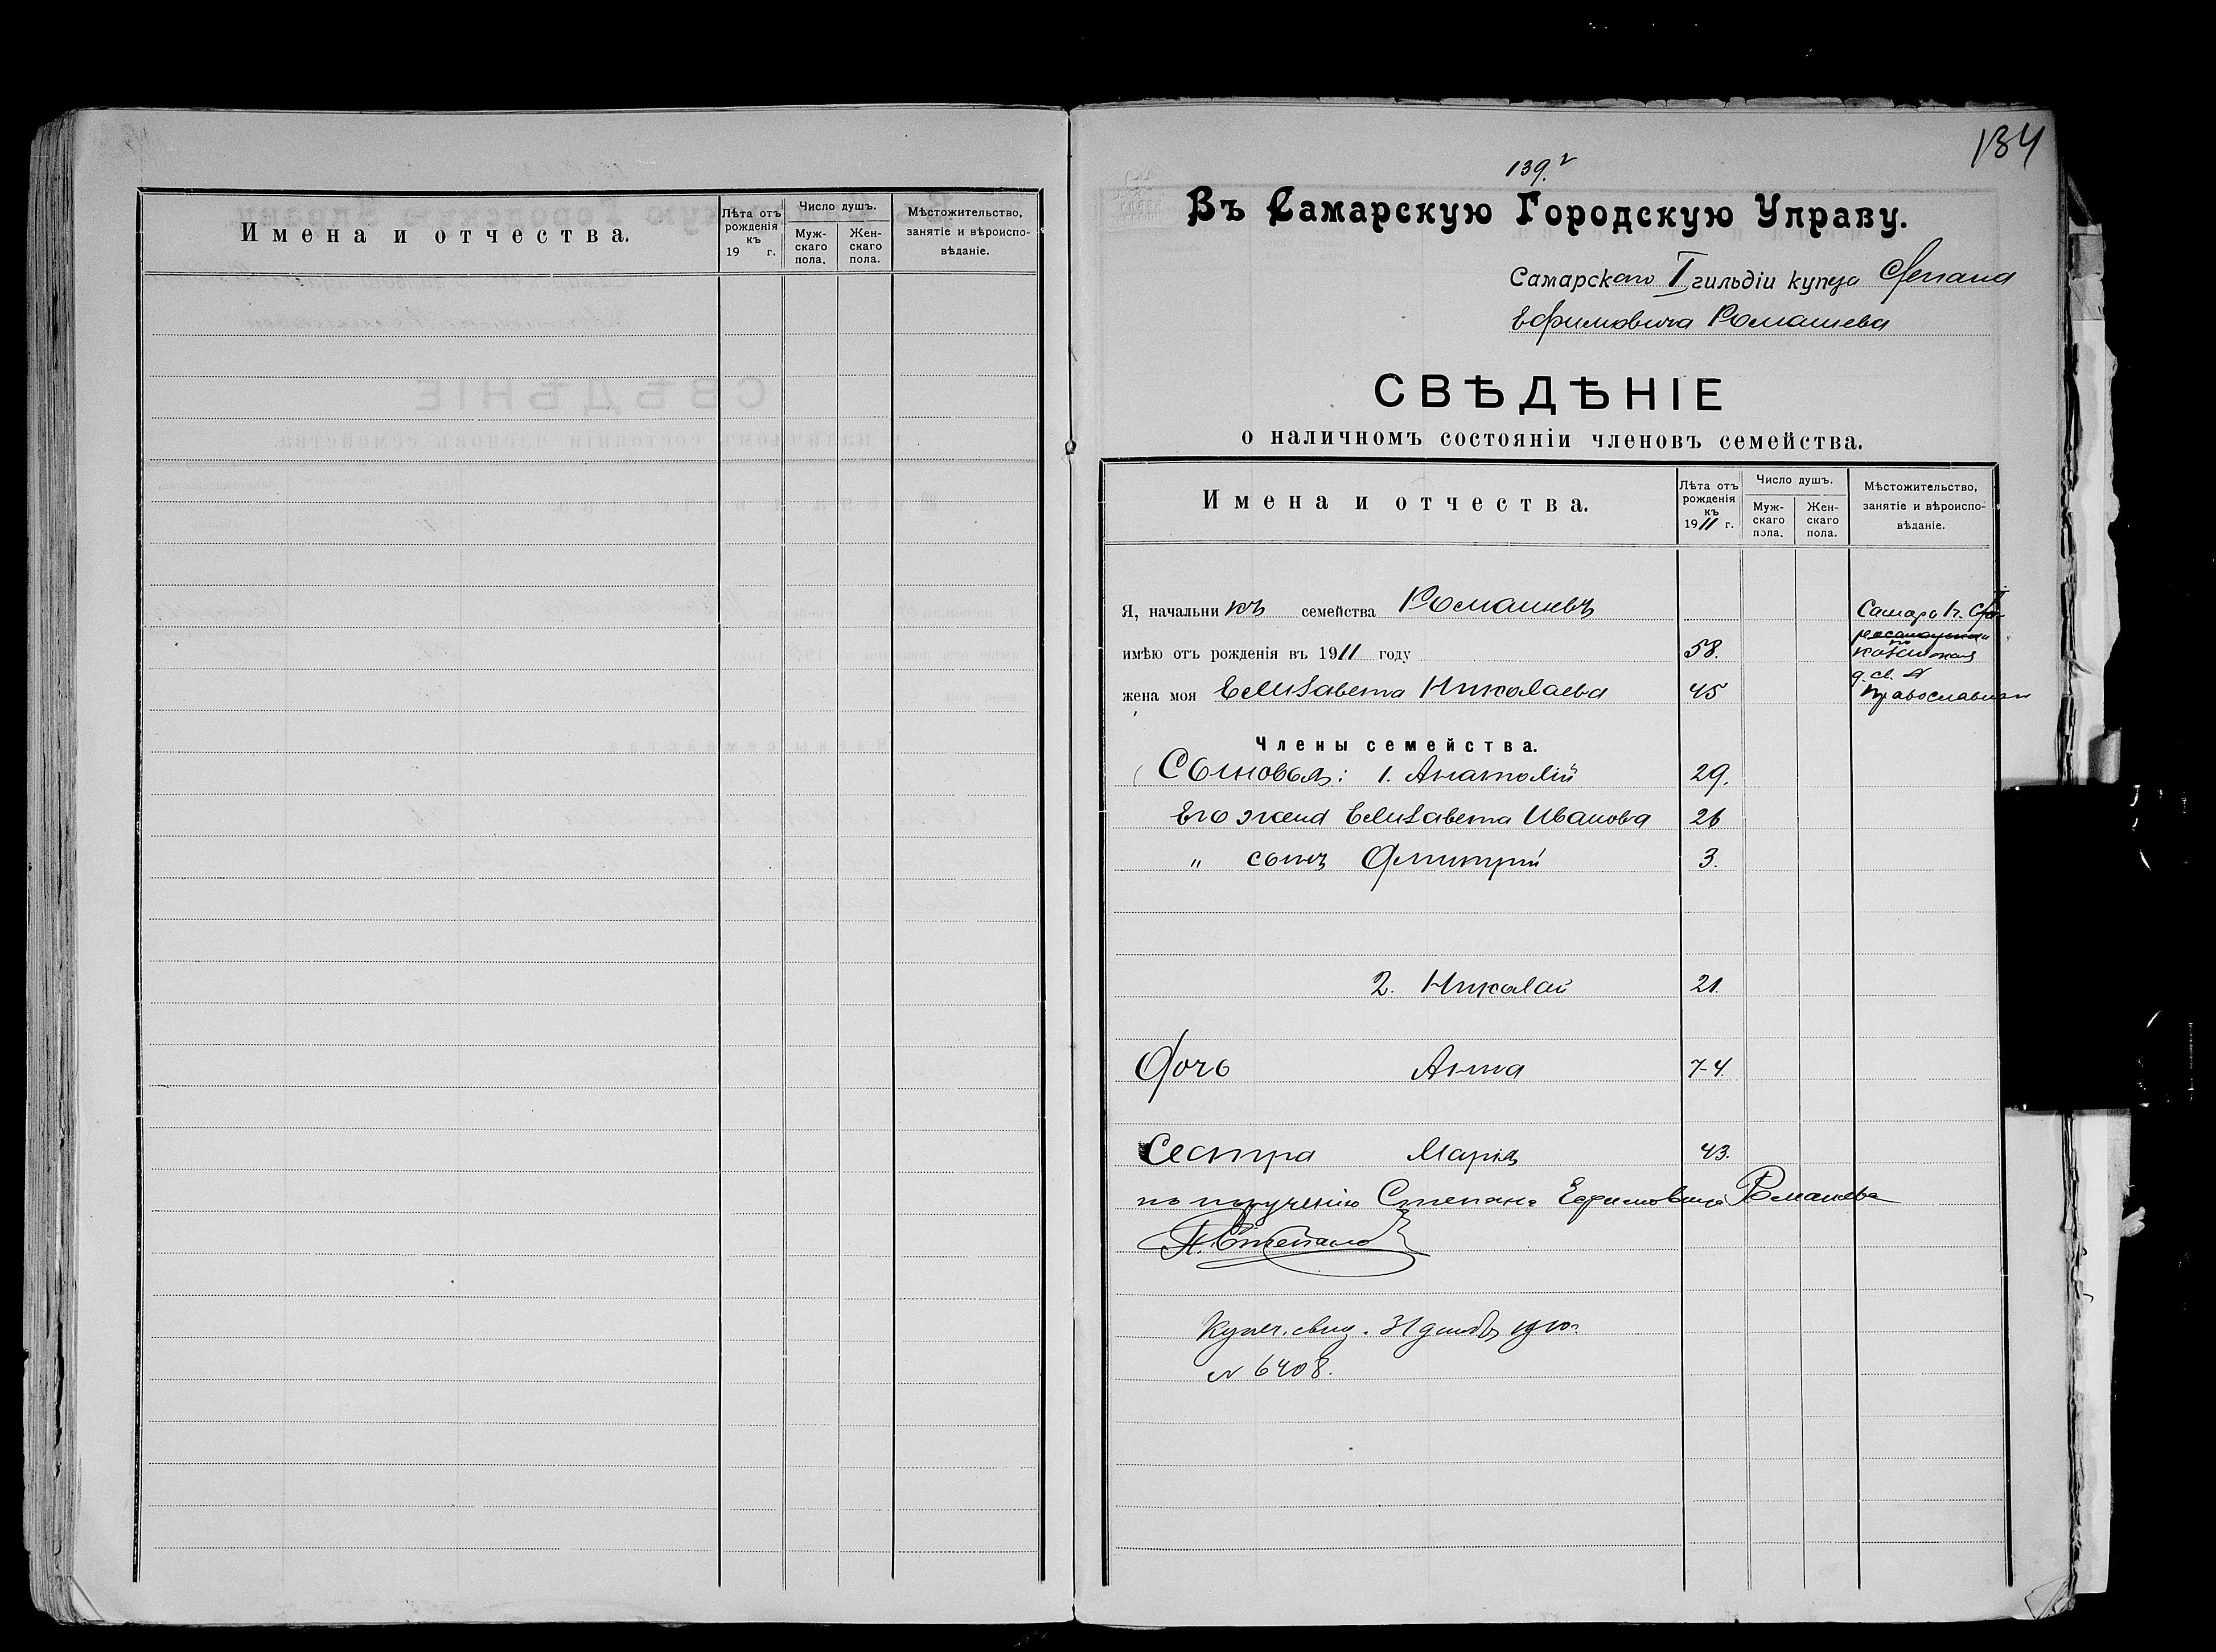 Имена и отчества.
Лѣта отъ рожденія къ 19 г.
Число душъ.
Муж-скаго пола.
Жен-скаго пола.
Мѣстожительство, занятіе и вѣроиспо-вѣданіе.
134
139.
Въ Самарскую Городскую Управу.
Самарскаго I гильдіи купца Степана
Ефимовича Ромашева
СВѢДѢНІЕ
о наличномъ состояніи членовъ семейства.
Имена и отчества.
Лѣта отъ рожденія къ 1911 г.
Число душъ.
Муж-скаго пола.
Жен-скаго пола.
Мѣстожительство, занятіе и вѣроиспо-вѣданіе.
Я, начальникъ семейства Ромашевъ
Самара
имѣю отъ рожденія въ 1911 году 58.
жена моя Елизавета Николаева 45
д. св.
Православнаго
Члены семейства.
Сыновья: 1. Анатолій 29.
Его жена Елизавета Иванова 26
" сынъ Дмитрій 3.
2. Николай 21.
Дочь Анна 74.
Сестра Марія 43.
по порученію Степана Ефимовича Ромашева
П. Степанов
Купеч. свид. 31 декабря 1910 г.
№ 6408.